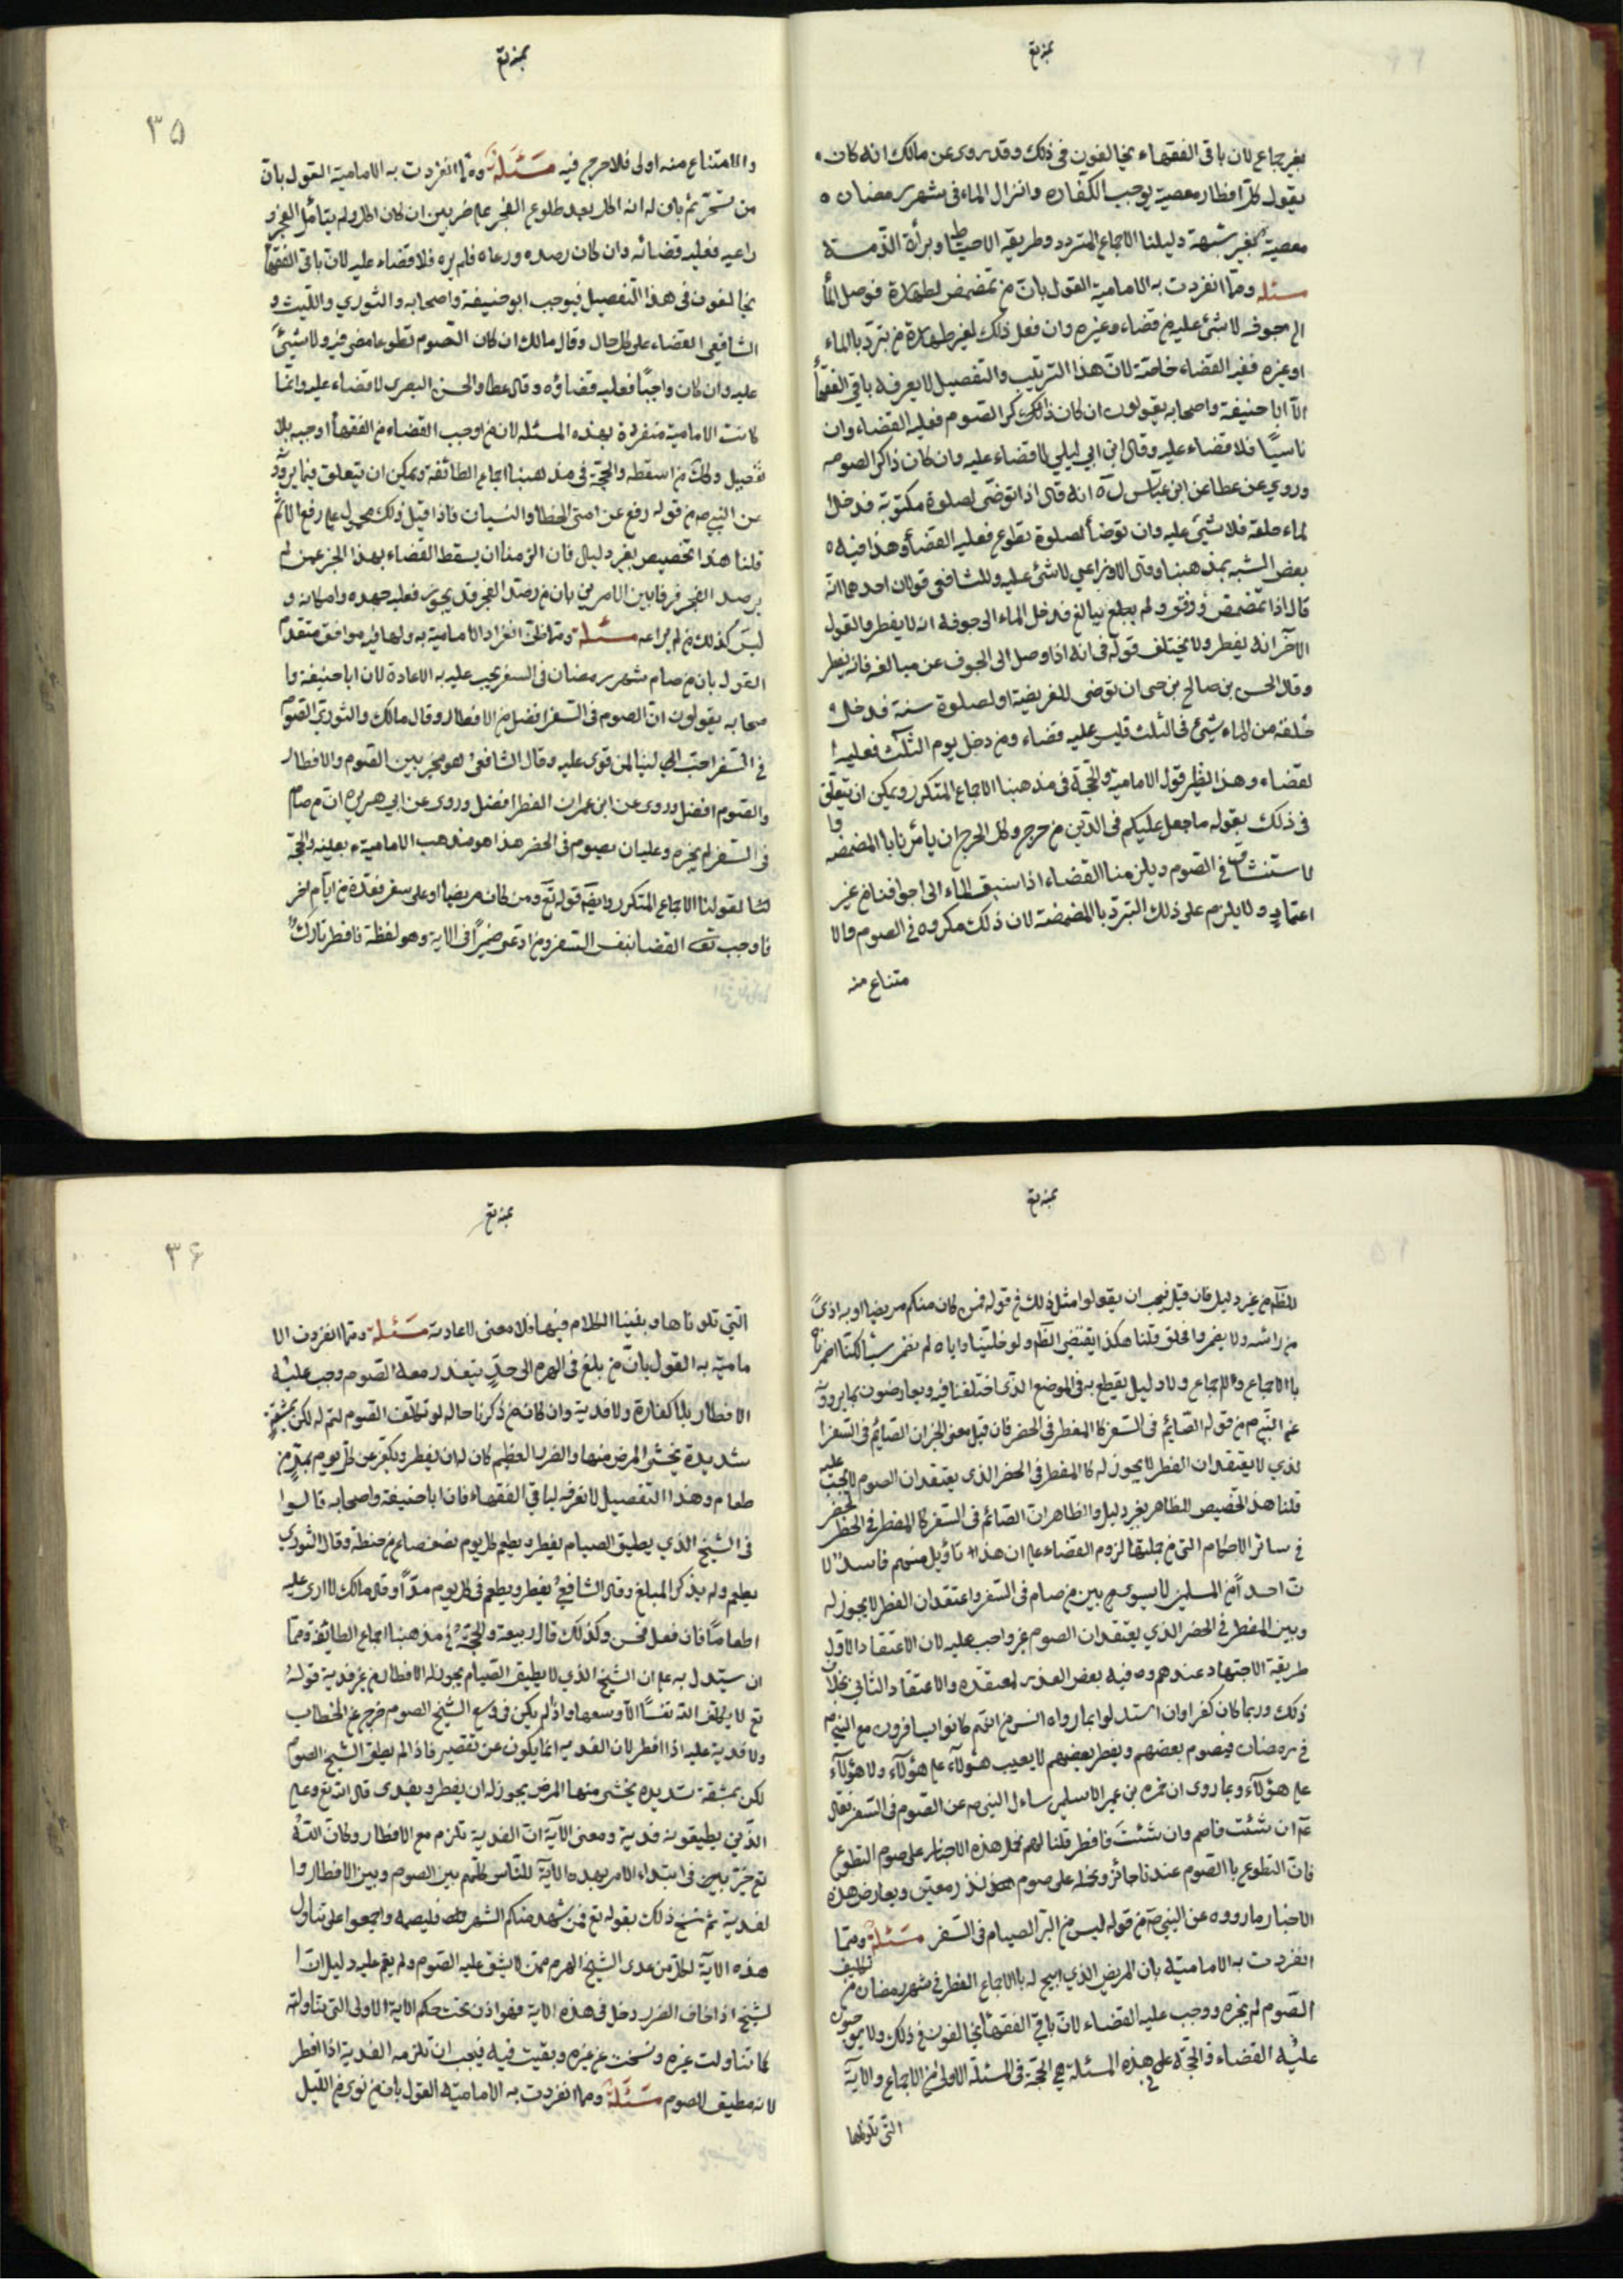 بمزنع
بغير جماع لان باقى الفقهاء يخالفون فى ذلك وقد روى عن مالك انه كان
يقول كل افطار معصية يوجب الكفاره وانزال الماء فى شهر رمضان ه
معصية بغير شبهة دليلنا الاجماع المتردد وطريقه الاحتياط وبرأة الذمة
مسئله ومما انفردت به الامامية القول بان من تمضمض لطهارة فوصل الماأ
الى جوفه لا شئ عليه من قضاء وغيره وان فعل ذلك لغير طهارة من تبرد بالماء
او غيره ففيه القضاء خاصة لان هذا الترتيب والتفصيل لا يعرفه باقي الفقهأ
الا ابا حنيفة واصحابه يقولون ان كان ذاكر الصوم فعليه القضاء وان
ناسيًا فلا قضاء عليه وقال ابن ابي ليلي لا قضاء عليه وان كان ذاكر الصومه
وروي عن عطا عن ابن عباس انه قال اذا توضى لصلوة مكتوبة فدخل
لماء حلقه فلا شئ عليه وان توضأ لصلوة تطوع فعليه القضأ وهذا فيه ه
بعض الشبه بمذهبنا وقال الاوزاعي لا شئ عليه وللشافعى قولان احدهما انه
قال اذا تمضمض ورفق ولم يبالغ فدخل الماء الى جوفه انه لا يفطر والقول
الآخر انه يفطر ولا يختلف قوله فى انه اذا وصل الى الجوف عن مبالغه فانه يفطر
وقال الحسن بن صالح بن حى ان توضى للفريضة او لصلوة سنة فدخل
حلقه من الماء شيئ فى الثلث فليس عليه قضاء ومن دخل يوم الثلث فعليه ا
لقضاء وهذا نظير قول الامامية والحجة فى مذهبنا الاجماع المتكرر ويمكن ان يتعلق
فى ذلك بقوله ما جعل عليكم فى الدين من حرج وكل الحرج ان يأمرنا بالمضمضه وا
لا ستنشاق فى الصوم ويلزمنا القضاء اذا سبق الماء الى اجوافنا من غير
اعتماد ولا يلزم على ذلك التبرد بالمضمضة لان ذلك مكروه فى الصوم والا
متناع منه
بمزنع
۳۵
والامتناع منه اولى فلا حرج فيه مسئلة ومما انفردت به الامامية القول بان
من تسحر ثم بان له انه اكل بعد طلوع الفجر على ضربين ان كان اكل ولم يتأمل الفجر و
راعيه فعليه قضائه وان كان رصده ورعاه فلم يره فلا قضاء عليه لان باقى الفقها
يخالفون فى هذا التفصيل فيوجب ابو حنيفة واصحابه والثوري والليث و
الشافعى القضاء على كل حال وقال مالك ان كان الصوم تطوعا مضى فيه ولا شيئ
عليه وان كان واجبًا فعليه قضاؤه وقال عطا والحسن البصرى لا قضاء عليه وانما
كانت الامامية منفردة بهذه المسئله لان من اوجب القضاء من الفقهأ اوجبه بلا
تفصيل وكذلك من اسقطه والحجة فى مذهبنا اجماع الطائفه ويمكن ان يتعلق فيما يروى
عن النبى ص من قوله رفع عن امتى الخطا والنسيان فاذا قيل ذلك محمول على رفع الاثم
قلنا هذا تخصيص بغير دليل فان الزمنا ان يسقط القضاء بهذا الخبر عمن لم
يرصد الفجر فرقنا بين الامرين بان من رصد الفجر قد تحرز فعليه جهده وامكانه و
ليس كذلك من لم يراعه مسئلة ومما ظن انفراد الامامية به ولها فيه موافق متقدم
القول بان من صام شهر رمضان فى السفر يجب عليه الاعادة لان ابا حنيفة وا
صحابه يقولون ان الصوم فى السفر افضل من الافطار وقال مالك والثوري الصوم
فى السفر احب الى لينا لمن قوى عليه وقال الشافعى هو مخير بين الصوم والافطار
والصوم افضل وروى عن ابن عمر ان الفطر افضل وروى عن ابي هريره ان من صام
فى السفر لم يجزه وعليه ان يصوم فى الحضر هذا هو مذهب الامامية بعينه والحجة
لنا لقولنا الاجماع المتكرر وايضا قوله تع ومن كان مريضا او على سفر فعدة من ايام اخر
فاوجب تعـ القضا بنفس السفر ومن ادعى ضميرًا فى الاية وهو لفظة فافطر تارك
بمزنع
للظاهر من غير دليل فان قيل فيجب ان يقولوا مثل ذلك فى قوله فمن كان منكم مريضا او به اذىً
من راسه ولا يضمروا فحلق قلنا هكذا يقتضى الظاهر ولو خلينا واياه لم نضمر شيئا لكنا اضمرناه
بالاجماع ولا اجماع ولا دليل يقطع به فى الموضع الذى اختلفنا فيه ويعارضون بما يروونه
عن النبى م من قوله الصائم فى السفر كالمفطر فى الحضر فان قيل معنى الخبر ان الصايم فى السفر ا
لذي لا يعتقد ان الفطر لا يجوز له كالمفطر فى الحضر الذى يعتقد ان الصوم لا يجب عليه
قلنا هذا تخصيص للظاهر بغير دليل والظاهر ان الصائم فى السفر كالمفطر فى الحضر
فى سائر الاحكام التى من جملتها لزوم القضاء على ان هذا تأويل منهم فاسد لا
ن احدًا من المسلمين لا يسوى بين من صام فى السفر واعتقد ان الفطر لا يجوز له
وبين المفطر فى الحضر الذي يعتقد ان الصوم غير واجب عليه لان الاعتقاد الاول
طريقه الاجتهاد عندهم وفيه بعض العذر لمعتقده والاعتقاد الثاني بخلاف
ذلك وربما كان كفرا وان استدلوا بما رواه انس من انهم كانوا يسافرون مع النبى م
فى رمضان فيصوم بعضهم ويفطر بعضهم لا يعيب هؤلآء على هؤلآء ولا هؤلآء
على هؤلآء وبما روى ان حمزه بن عمير الاسلمى ساءل النبى ص عن الصوم فى السفر فقال
عم ان شئت فاصم وان شئت فافطر قلنا لهم نحمل هذه الاخبار على صوم التطوع
فان التطوع بالصوم عندنا جائز ونحمله على صوم نذر معين ويعارض هذه
الاخبار ما رووه عن النبى ص من قوله ليس من البر الصيام فى السفر مسئلة ومما
انفردت به الامامية بان المريض الذي ابيح له بالاجماع الفطر فى شهر رمضان من تكليف
الصوم لم يجزه ووجب عليه القضاء لان باقى الفقهأ يخالفون فى ذلك ولا يوجبون
عليه القضاء والحجة على هذه المسئلة هى الحجة فى المسئلة الاولى من الاجماع والآية
التى تلوناها
بمزنع
۳۶
التي تلوناها وبقينا الكلام فيها فلا معنى لاعادته مسئلة ومما انفردت الا
مامية به القول بان من بلغ فى الهرم الى حد يتعذر معه الصوم وجب عليه
الافطار بلا كفارة ولا فدية وان كان من ذكرنا حاله لو تكلف الصوم لتم له لكن بمشقة
شديدة يخشى المرض منها والضرر العظيم كان له ان يفطر ويكفر عن كل يوم بمد من
طعام وهذا التفصيل لا نعرفه لباقى الفقهاء فان ابا حنيفة واصحابه قالوا
فى الشيخ الذي يطيق الصيام يفطر ويطعم كل يوم نصف صاع من حنطة وقال الثورى
يطعم ولم يذكر المبلغ وقال الشافعى يفطر ويطعم فى كل يوم مدًّا وقال مالك لا ارى عليه
اطعامًا فان فعل فحسن وكذلك قال ربيعة والحجة فى مذهبنا اجماع الطائفة ومما
ان يستدل به على ان الشيخ الذي لا يطيق الصيام يجوز له الافطار من غير فدية قوله
تع لا يكلف الله نفسًا الا وسعها واذا لم يكن فى وسع الشيخ الصوم خرج عن الخطاب
ولا فدية عليه اذا افطر لان الفديه انما يكون عن تقصير فاذا لم يطق الشيخ الصوم
لكن بمشقة شديده يخشى منها المرض يجوز له ان يفطر ويفدى قال الله تع وعلى
الذين يطيقونه فدية ومعنى الآية ان الفدية تلزم مع الافطار وكان الله
تع خير بهذه فى ابتداء الامر بهذه الآية للناس كلهم بين الصوم وبين الافطار وا
لفدية ثم نسخ ذلك بقوله تع فمن شهد منكم الشهر فليصمه واجمعوا على تناول
هذه الآية لكل من عدى الشيخ الهرم ممن لا يشق عليه الصوم ولم يقم عليه دليل ان ا
لشيخ اذا خاف الضرر دخل فى هذه الاية فهو اذن تحت حكم الآية الاولى التى تناولته
كما تناولت غيره ونسخت عن غيره وبقيت فيه فيجب ان تلزمه الفدية اذا افطر
لانه مطيق للصوم مسئلة ومما انفردت به الامامية القول بان من نوى من الليل